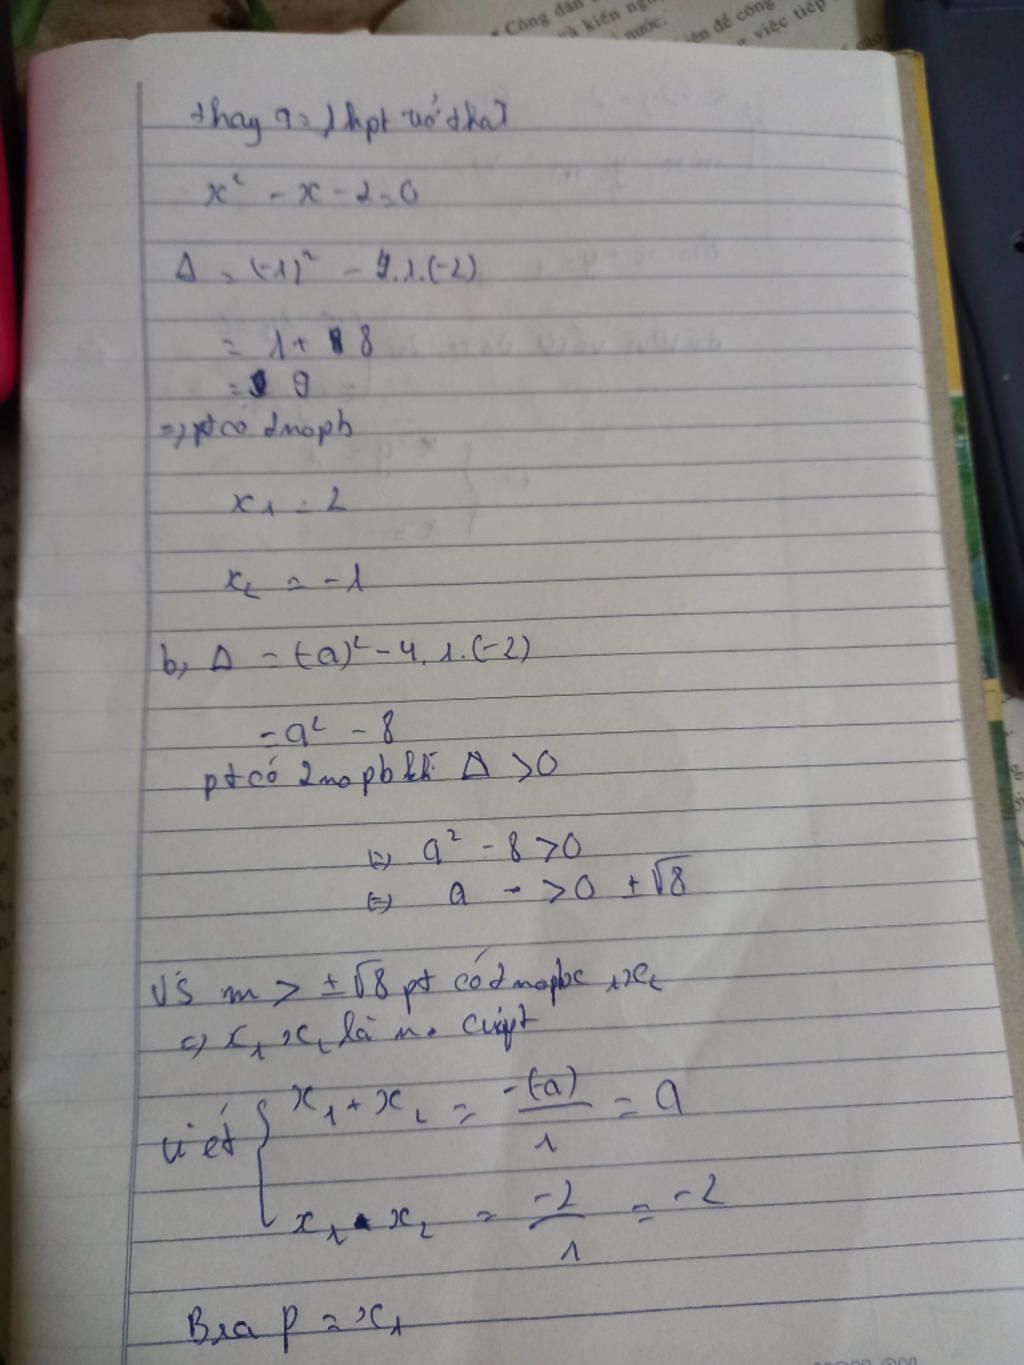 Công dân
và kiến ngh
nước.
iện để công
việc tiếp
thay a = 1 hpt
x² - x - 2 = 0
Δ = (-1)² - 4.1.(-2)
= 1 + 8
= 9
=> pt có 2 no pb
x₁ = 2
x₂ = -1
b, Δ = (-a)² - 4.1.(-2)
= a² - 8
pt có 2 no pb khi Δ > 0
(=) a² - 8 > 0
(=) a > 0 ± √8
Với m > ± √8 pt có 2 no pb x₁x₂
c) x₁ x₂ là no của pt
Vi ét { x₁ + x₂ = -(-a)/1 = a
x₁ . x₂ = -2/1 = -2
P = x₁